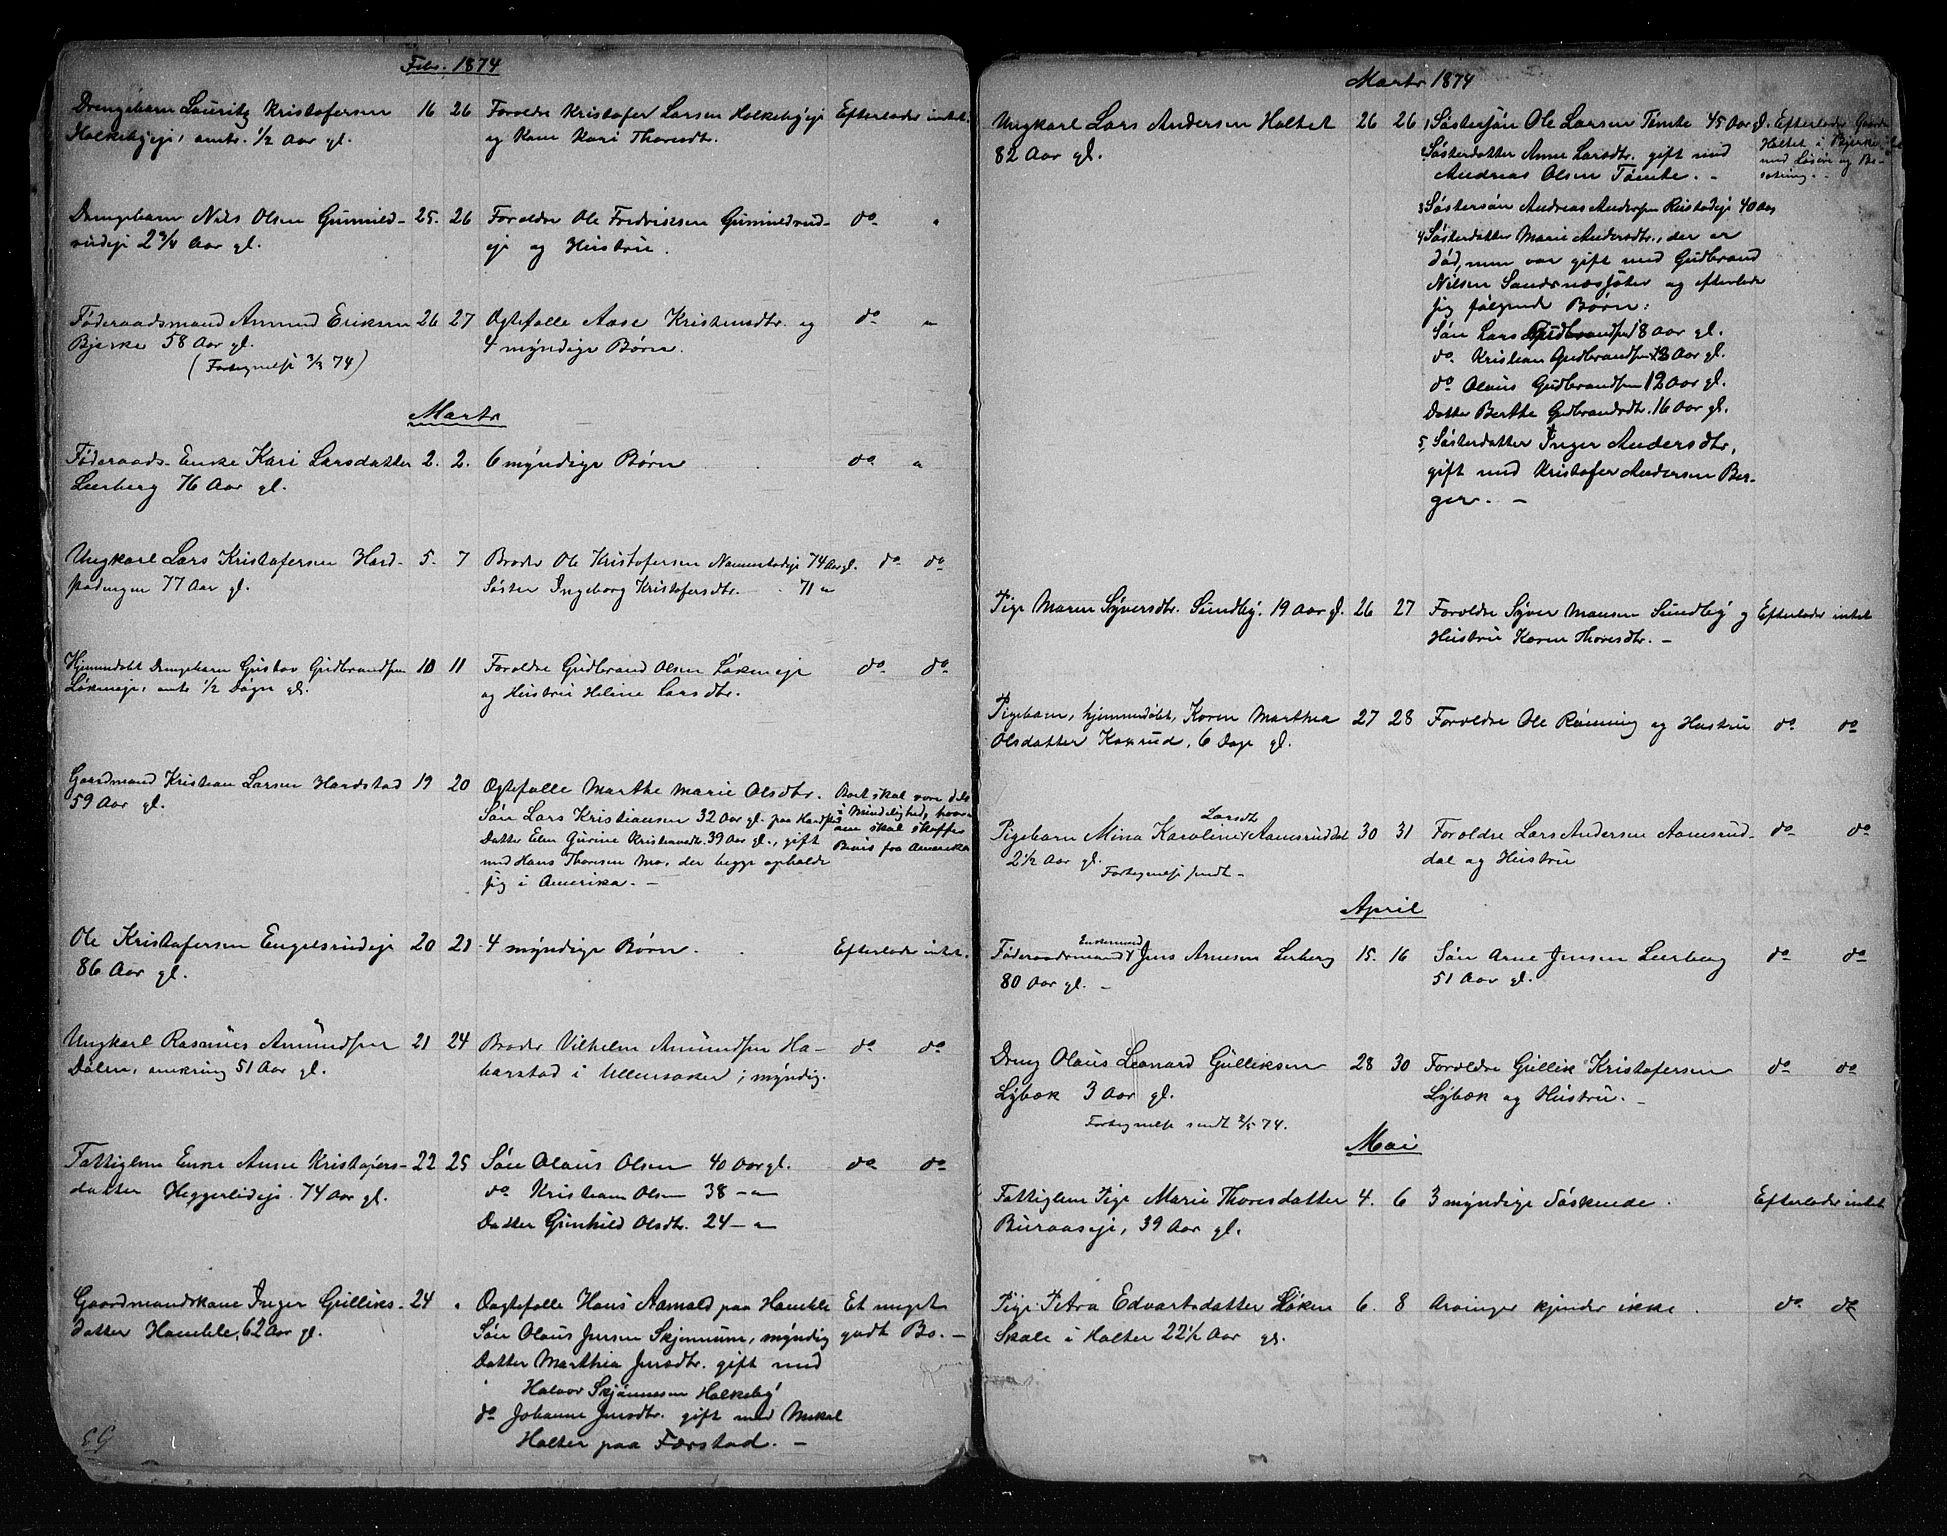 Febr. 1874
Drengebarn Lauritz Kristofersen 16 26 Foreldre Kristofer Larsen Holkebyeje Efterlader intet.
Holkebyeje, omtr. 1/2 Aar gl. og Kone Kari Thorsdtr.
Drengebarn Nils Olsen Gunnild- 25. 26 Foreldre Ole Fredriksen Gunnildrud- do "
rudeje 2 3/4 Aar gl. eje og Hustru.
Føderaadsmand Amund Eriksen 26 27 Ægtefælle Aase Kristensdtr. og do "
Bjerke 58 Aar gl. 4 myndige Børn.
(Fortegnelse 3/3 74)
Marts
Føderaads-Enke Kari Larsdatter 2. 2. 6 myndige Børn do "
Lerberg 76 Aar gl.
Ungkarl Lars Kristofersen Hard- 5. 7 Broder Ole Kristofersen Nannestadeje 74 Aar gl. do do
77 Aar gl. Søster Ingeborg Kristofersdtr. 71 "
Hjemmedøbt Drengebarn Gustav Gudbrandsen 10 11 Foreldre Gudbrand Olsen Løkeneje do do
Løkeneje, omtr. 1/2 Døgn gl. og Hustru Heline Larsdtr.
Gaardmand Kristian Larsen Hardstad 19 20 Ægtefælle Marthe Marie Olsdtr. Boet skal være delt
59 Aar gl. Søn Lars Kristiansen 32 Aar gl. paa Hardstad i Mindelighed, hvor-
Datter Elen Gurine Kristiansdtr. 39 Aar gl., gift om skal skaffes
med Hans Thoresen Mo, der begge opholde Bevis fra Amerika
sig i Amerika. -
Ole Kristofersen Engelsrudeje 20 21 4 myndige Børn. Efterlader intet.
86 Aar gl.
Ungkarl Rasmus Amundsen 21 24 Broder Vilhelm Amundsen Ha- do do
Dølen, omkring 51 Aar gl. barstad i Ullensaker, myndig.
Fattiglem Enke Anne Kristofers- 22 25 Søn Olaus Olsen 40 Aar gl. do do
datter Heggerlideje 74 Aar gl. do Kristian Olsen 38 - " -
Datter Gunhild Olsdtr. 24 - "
Gaardmandskone Inger Gulliks- 24 " Ægtefælle Hans Aamold paa Hamble Et meget
datter Hamble, 62 Aar gl. Søn Olaus Jensen Skjennum, myndig godt Bo. -
Datter Marthea Jensdtr. gift med
Halvor Skjønnesen Holkeby
do Johanne Jensdtr. gift med Mikal
Holter paa Færstad. -
Marts 1874
Ungkarl Lars Andersen Holtet 26 26 1 Søstersøn Ole Larsen Tømte 45 Aar gl. Efterlader Gaarden
82 Aar gl. 2 Søsterdatter Anne Larsdtr. gift med Holtet i Bjerke
Andreas Olsen Tømte. - med Løsøre og Be-
sætning. -
3 Søstersøn Andreas Andersen Rustadeje 40 Aar
4 Søsterdatter Marie Andersdtr., der er
død, men var gift med Gudbrand
Nilsen Sandsnæsseter og efterlader
sig følgende Børn:
Søn Lars Gudbrandsen 18 Aar gl.
do. Kristian Gudbrandsen 13 Aar gl.
do Olaus Gudbrandsen 12 Aar gl.
Datter Berthe Gudbrandsdtr. 16 Aar gl.
5. Søsterdatter Inger Andersdtr,
gift med Kristofer Andersen Ber-
ger. -
Pige Maren Syversdtr. Sundby. 19 Aar gl. 26 27 Foreldre Syver Monsen Sundby og Efterlader intet
Hustru Karen Thoresdtr. -
Pigebarn, hjemmedøbt, Karen Marthea 27 28 Foreldre Ole Rønning og Hustru do do
Olsdatter Kopsrud, 6 Dage gl.
Larsdtr
Pigebarn Mina Karoline Aamsruddal 30 31 Foreldre Lars Andersen Aamsrud- do do
2 1/2 Aar gl. dal og Hustru
Fortegnelse sendt -
April
Enkemand
Føderaadsmand Jens Arnesen Lerberg 15. 16 Søn Arne Jensen Leerberg do do
80 Aar gl. - 51 Aar gl.
Dreng Olaus Leonard Gulliksen 28 30 Foreldre Gullik Kristofersen do do
Lybæk 3 Aar gl. Lybæk og Hustru. -
Fortegnelse sendt 2/5 74.
Mai
Fattiglem Pige Marie Thoresdatter 4. 6 3 myndige Søskende. Efterlader intet
Buraaseje, 39 Aar gl.
Pige Petra Edvartsdatter Løken 6. 8 Arvinger kjendes ikke. do. do
Skole i Holter 22 1/2 Aar gl.